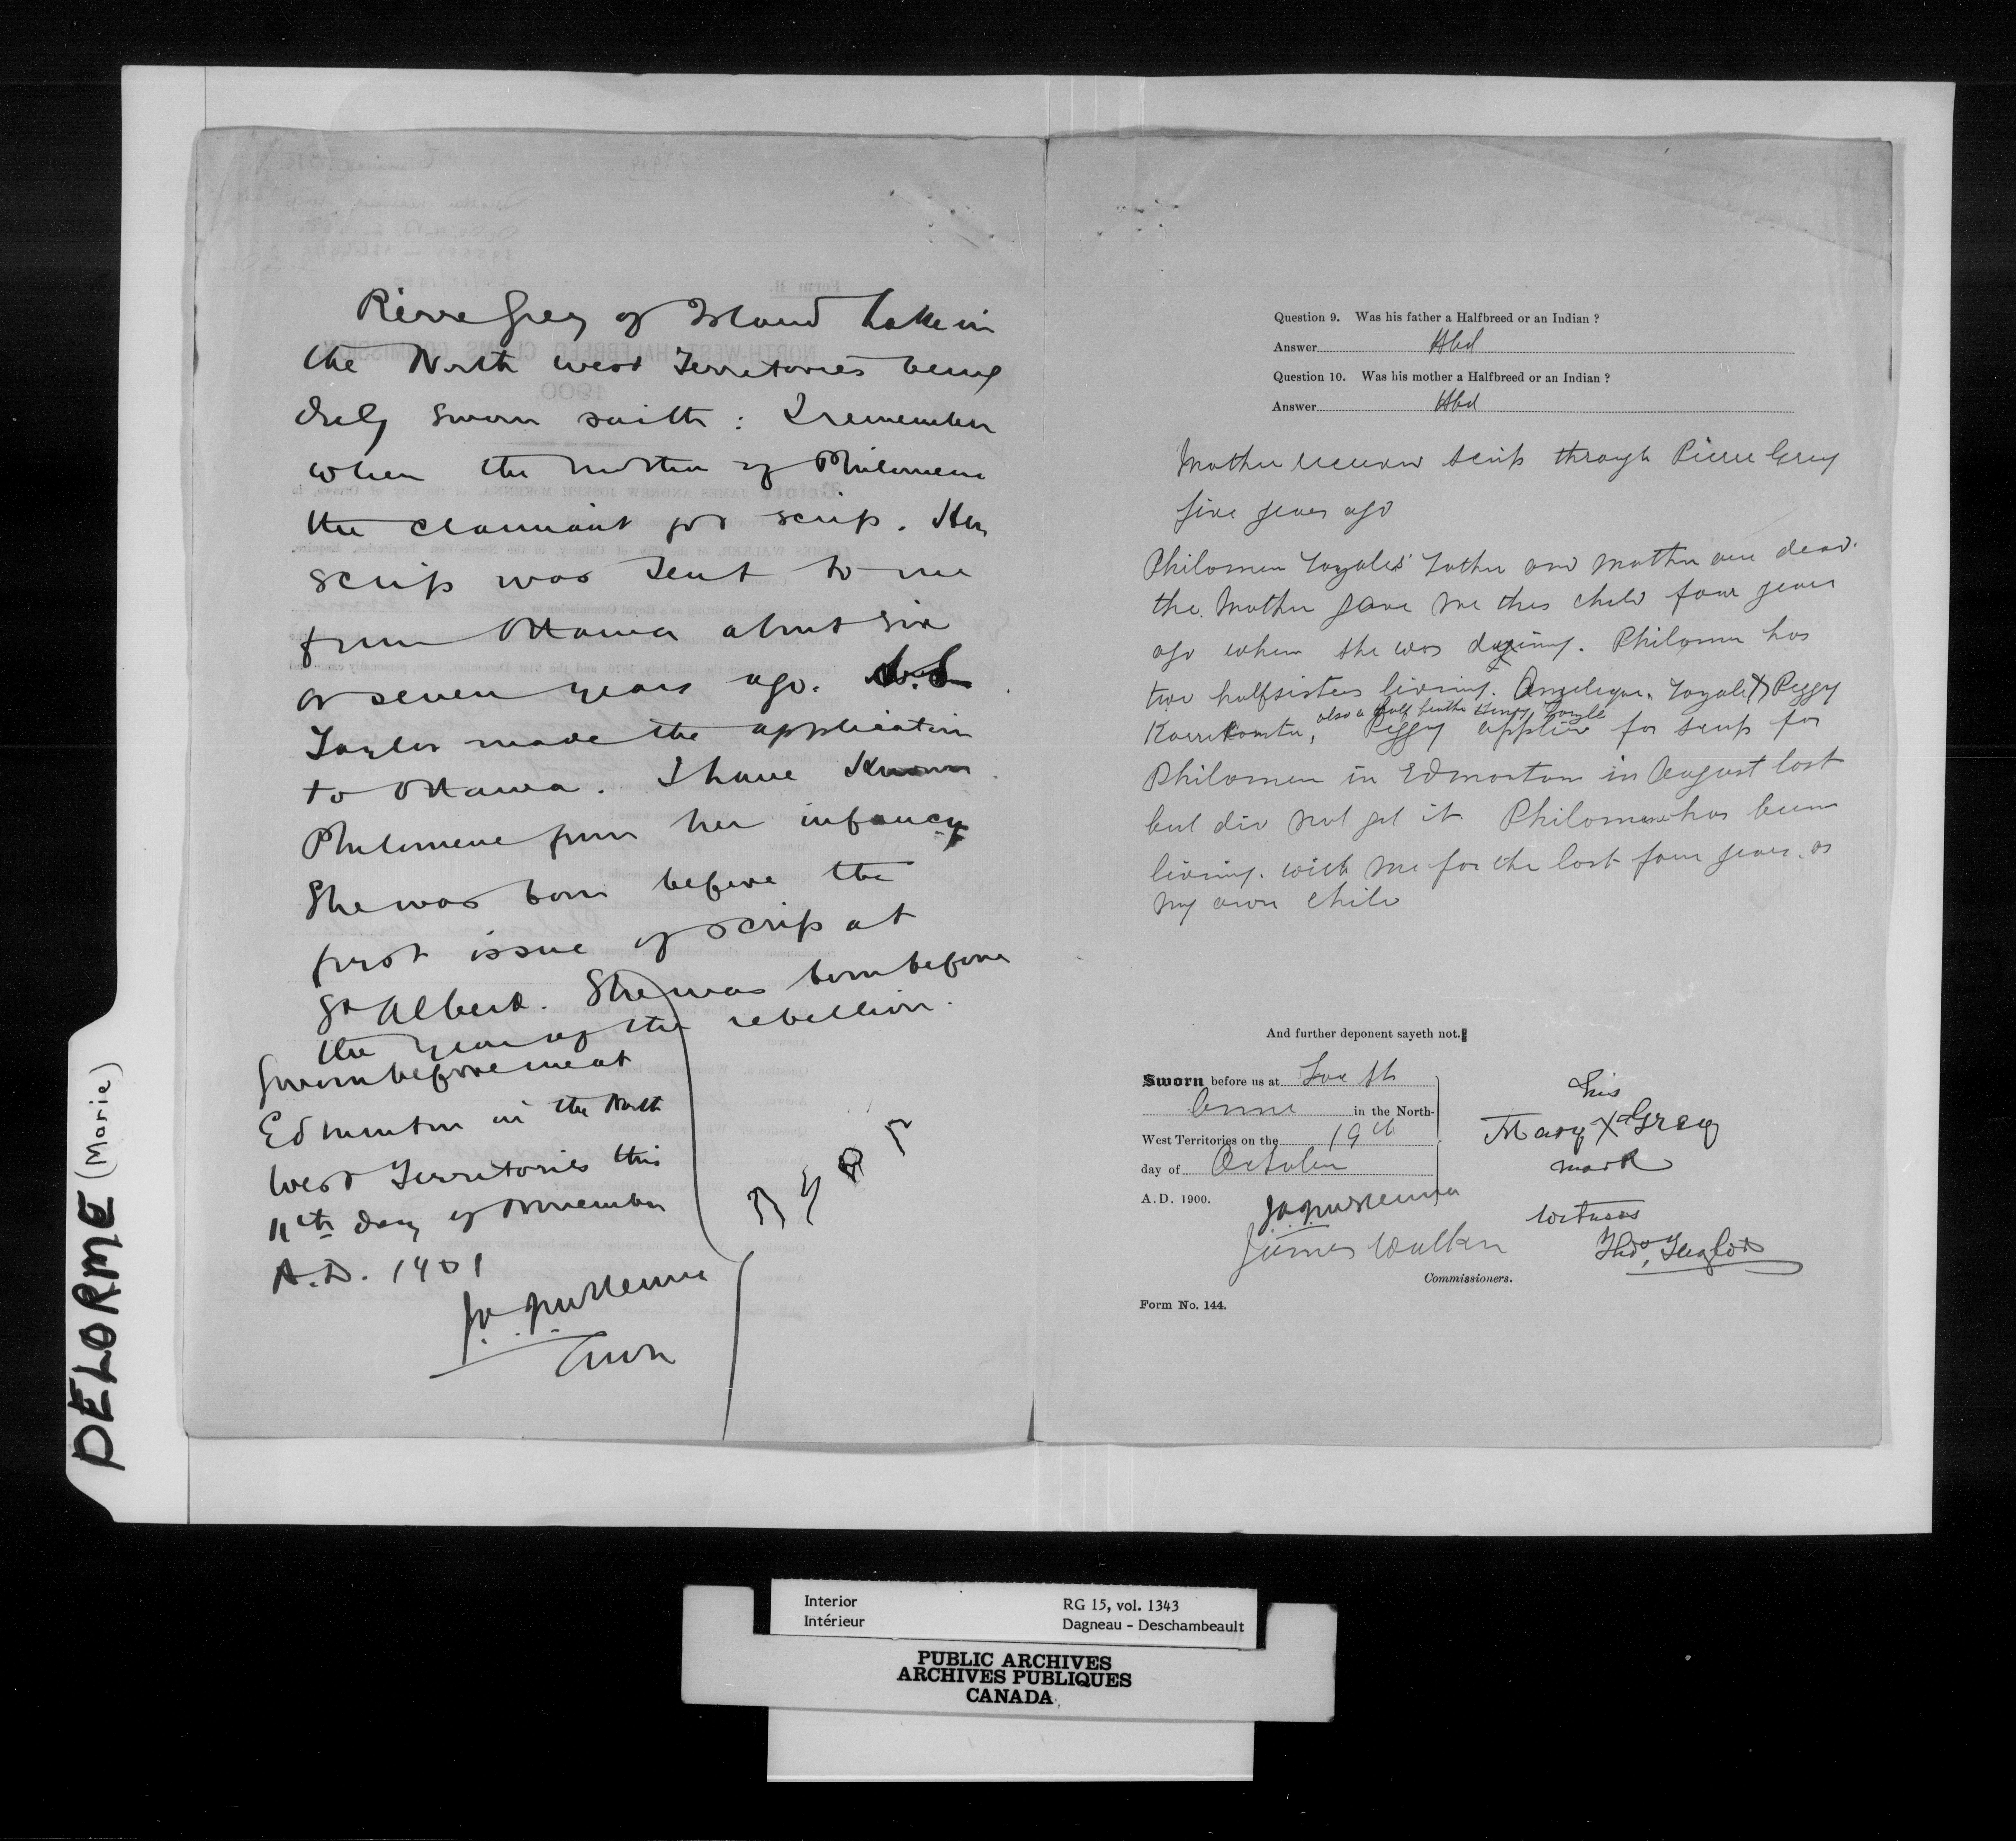 DELORME (Marie)
Pierre Grey of Island Lake in
the North West Territories being
duly sworn saith : I remember
when the mother of Philomene
the claimant got scrip. Her
scrip was sent to me
from Ottawa about six
or seven years ago.
Taylor made the application
to Ottawa. I have known
Philomene from her infancy
She was born before the
first issue of scrip at
St Albert. She was born before
the year of the rebellion.
Sworn before me at
Edmonton in the North
West Territories this
11th day of November
A.D. 1901
J.A.J. McKenna
Question 9. Was his father a Halfbreed or an Indian ?
Answer Hbd
Question 10. Was his mother a Halfbreed or an Indian ?
Answer Hbd
Mother received scrip through Pierre Grey
five years ago
Philomen father and mother are dead.
the mother gave me this child four years
ago when she was dying. Philomen has
two half sisters living. Angelique Peggy
also a half brother
Peggy applied for scrip for
Philomen in Edmonton in August last
but did not get it Philomene has been
living with me for the last four years as
my own child
And further deponent sayeth not.
Sworn before us at Lac St
Anne in the North-
West Territories on the 19th
day of October
A.D. 1900.
J.A.J. McKenna
James Walker
Commissioners.
his
Mary X Grey
mark
Witness
Form No. 144.
Interior
Intérieur
RG 15, vol. 1343
Dagneau - Deschambeault
PUBLIC ARCHIVES
ARCHIVES PUBLIQUES
CANADA